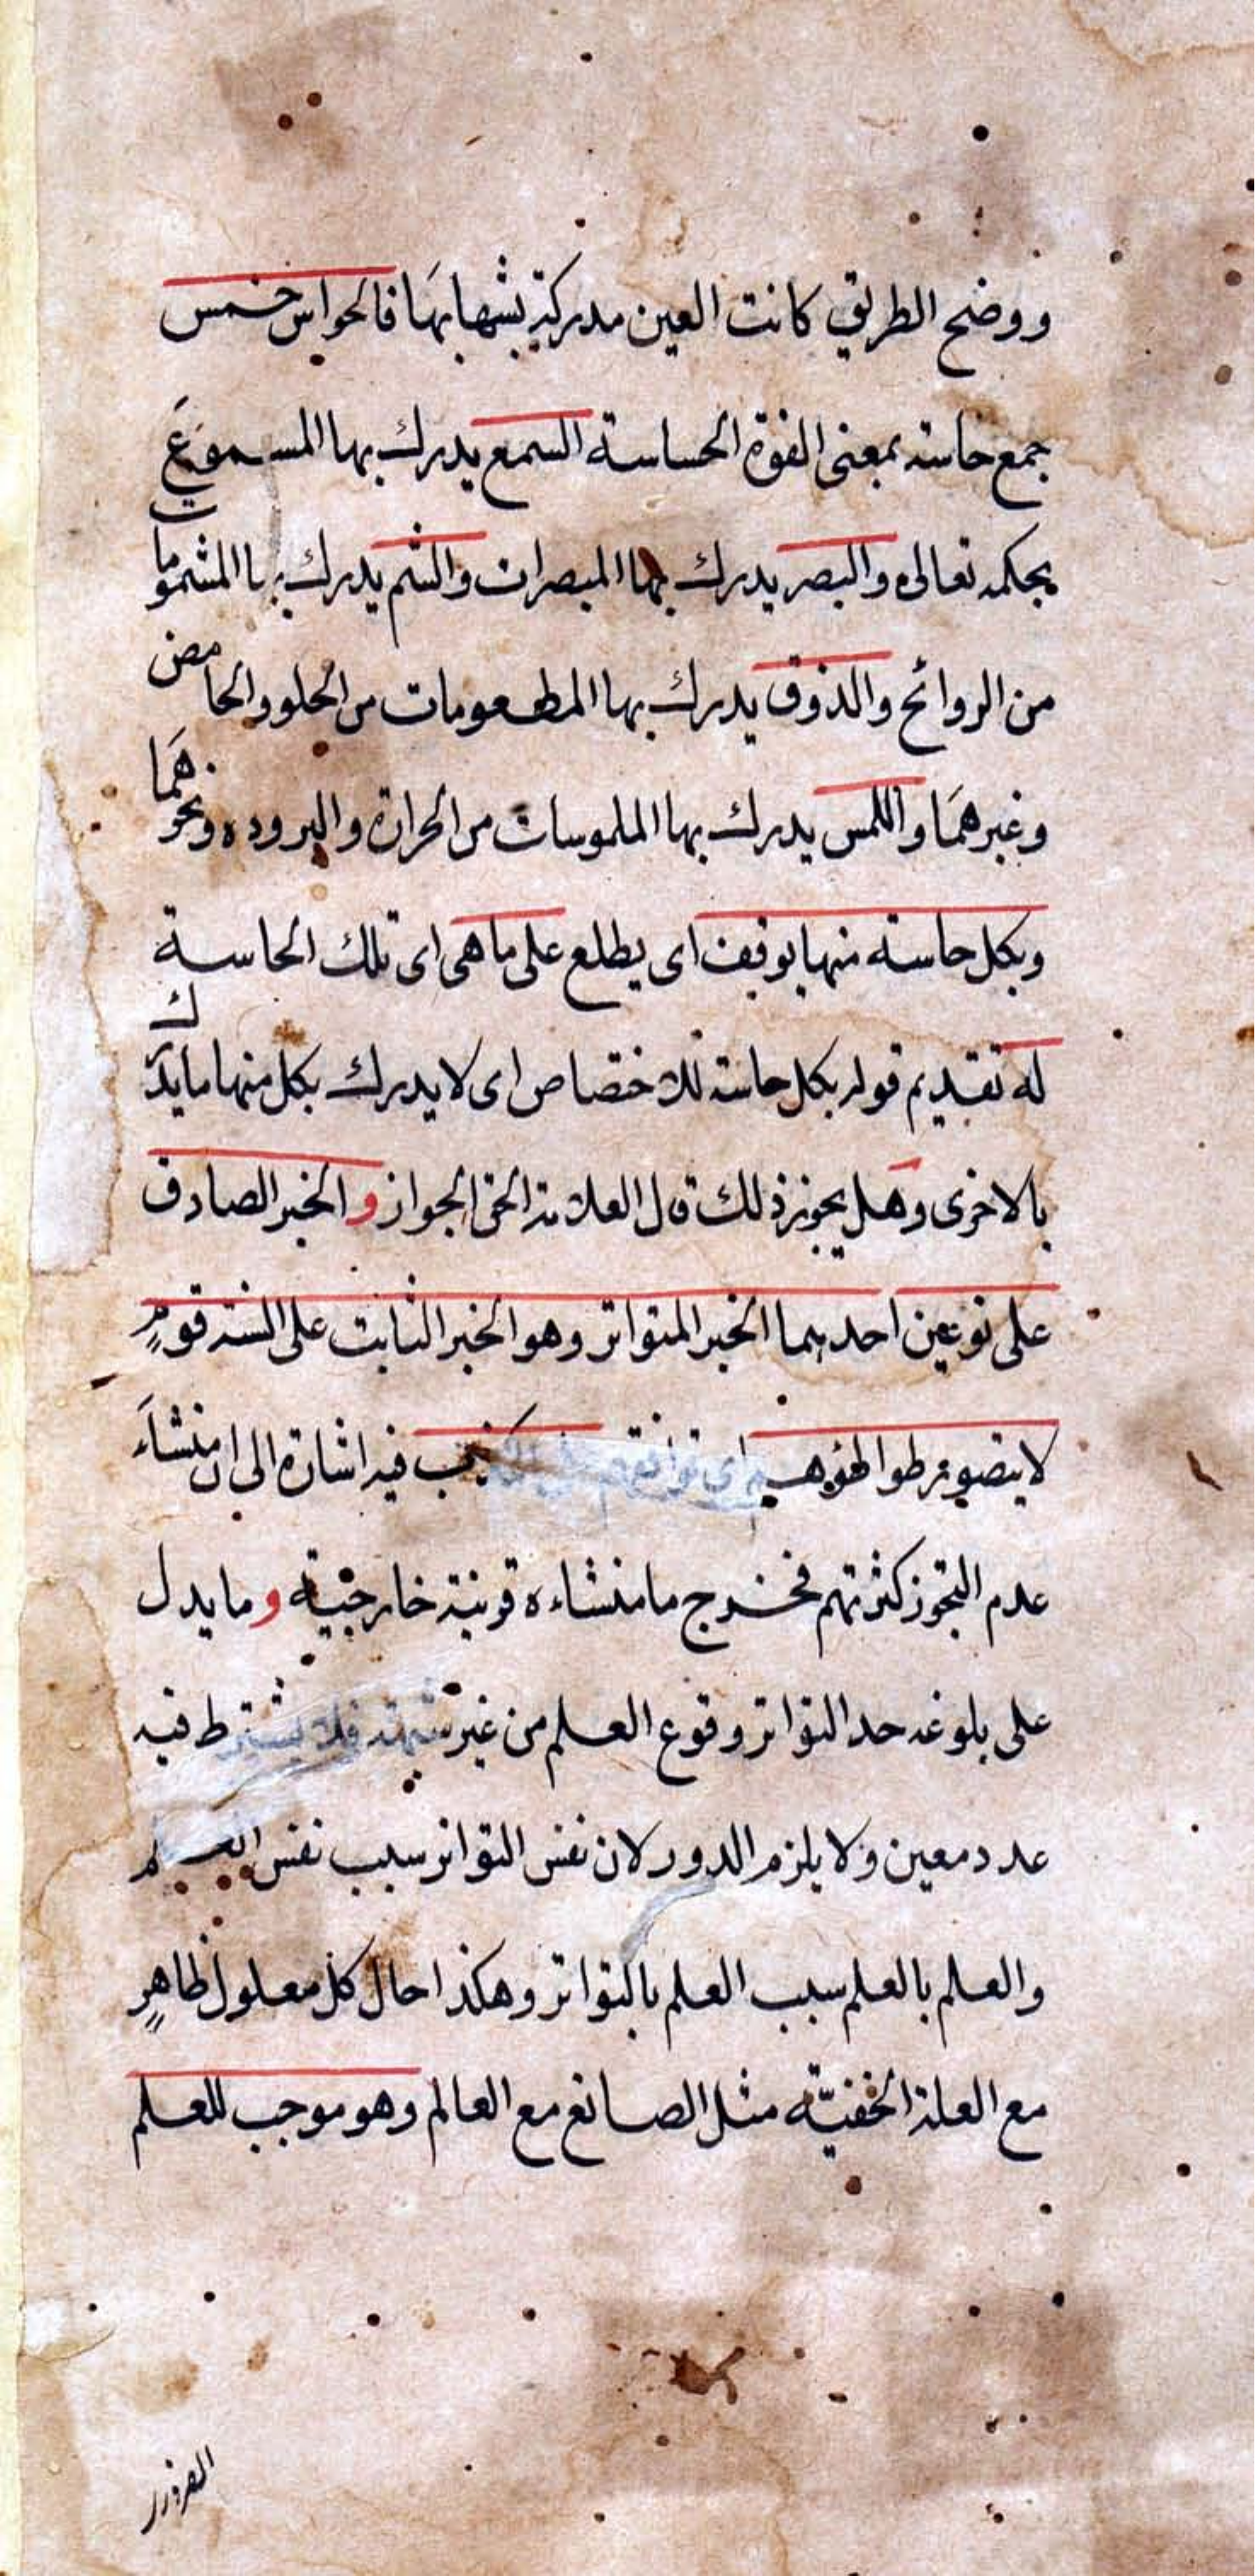 ووضح الطريق كانت العين مدركة بشهابها فالحواس خمس
جمع حاسة بمعنى القوة الحساسة السمع يدرك بها المسموعَ
بحكمه تعالى والبصر يدرك بها المبصرات والشم يدرك بها المشمومات
من الروائح والذوق يدرك بها المطعومات من الحلو والحامض
وغيرهمَا واللمس يدرك بها الملموسات من الحرارة والبرودة ونحوهمَا
وبكل حاسة منها يوقف اى يطلع على ما هى اى تلك الحاسة
له تقديم قوله بكل حاسة للاختصاص اى لا يدرك بكل منها ما يدرك
بالاخرى وهل يجوز ذلك قال العلامة الحق الجواز و الخبر الصادق
على نوعين احدهما الخبر المتواتر وهو الخبر الثابت على السنة قومٍ
لا يتصور تواطؤهم اى توافقهم على الكذب فيه اشارة الى ان منشاءَ
عدم التجوز كثرتهم فخرج ما منشاءه قرينة خارجية و ما يدل
على بلوغه حد التواتر وقوع العلم من غير شبهة فلا يشترط فيه
عدد معين ولا يلزم الدور لان نفس التواتر سبب نفس العلم
والعلم بالعلم سبب العلم بالتواتر وهكذا حال كل معلول ظاهرٍ
مع العلة الخفيّة مثل الصانع مع العالم وهو موجب للعلم